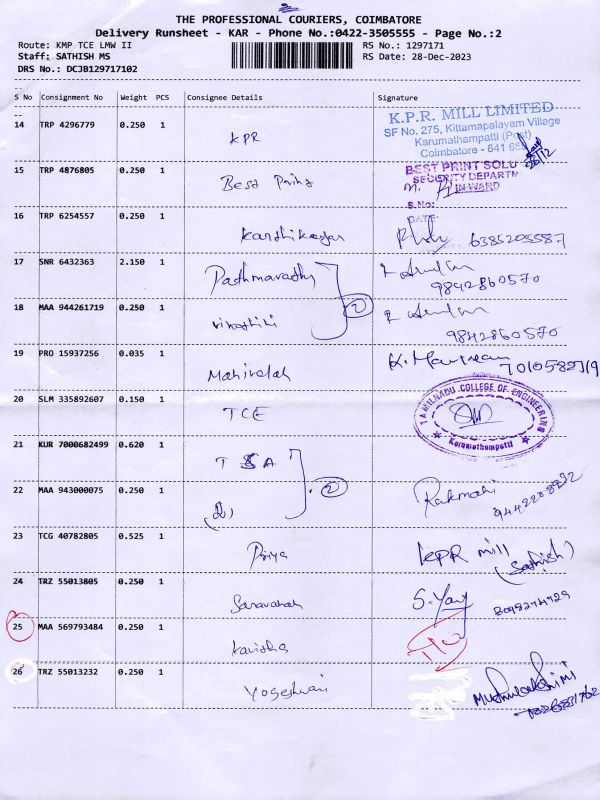 2
THE PROFESSIONAL COURIERS, COIMBATORE
Delivery Runsheet - KAR - Phone No.:0422-3505555 - Page No.:2
Route: KMP TCE LMW II RS No.: 1297171
Staff: SATHISH MS RS Date: 28-Dec-2023
DRS No.: DCJB129717102
S No Consignment No Weight PCS Consignee Details Signature
14 TRP 4296779 0.250 1 KPR
K.P.R. MILL LIMITED
SF No. 275, Kittamapalayam Village
Karumathampatti (Post)
Coimbatore - 641 659
15 TRP 4876805 0.250 1 Best Print
BEST PRINT SOLU
SECURITY DEPARTM
IN WARD
S.No:
DATE:
16 TRP 6254557 0.250 1 6385205587
17 SNR 6432363 2.150 1 Pathmavathy
9842860570
18 MAA 944261719 0.250 1 2
9842860570
19 PRO 15937256 0.035 1
20 SLM 335892607 0.150 1 TCE
TAMILNADU COLLEGE OF ENGINEERING
Karumathampatti
21 KUR 7000682499 0.620 1
22 MAA 943000075 0.250 1 2
23 TCG 40782805 0.525 1 Priya KPR mill
(Sathish)
24 TRZ 55013805 0.250 1 Saravanan
25 MAA 569793484 0.250 1 Kavitha
26 TRZ 55013232 0.250 1 Yogeshwari